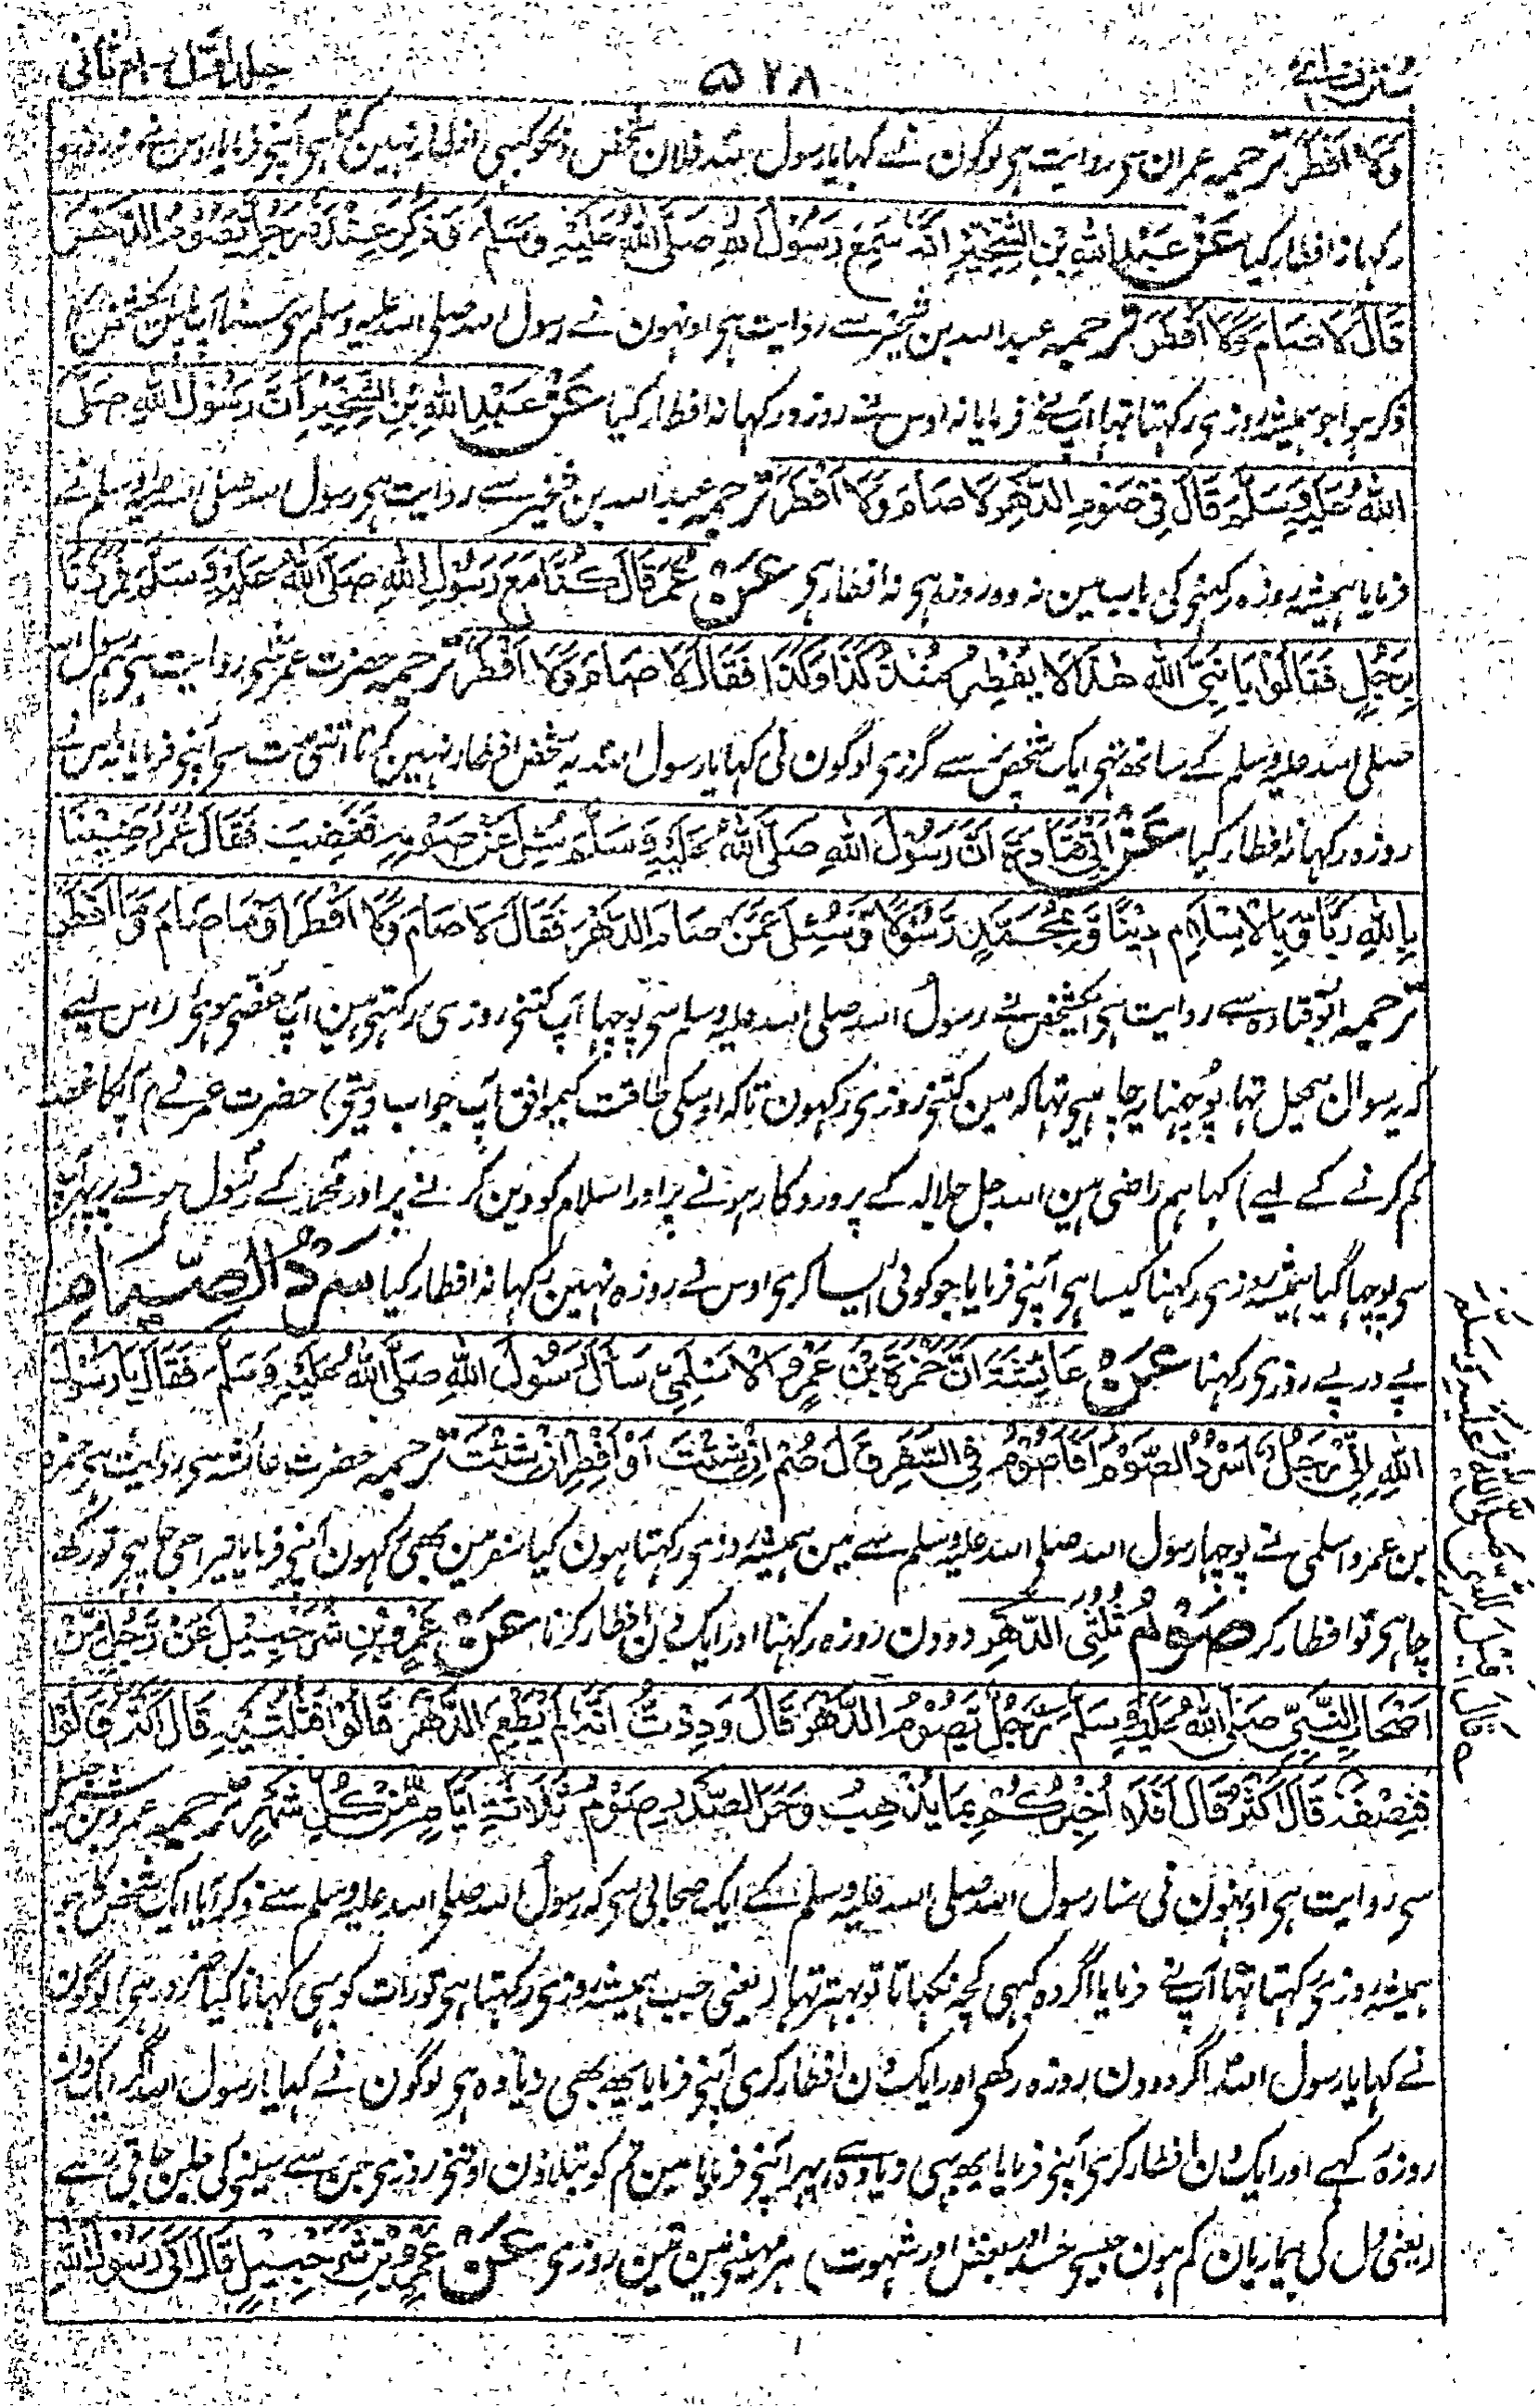 سنن نسائی ۵۲۸ جلد اول - ام ثانی
وَلَا اَفْطَرَ ترجمہ عمران سی روایت ہی لوگون نے کہا یا رسول اللہ فلان شخص دنکو کبھی افطار نہین کرتا ہی آپنے فرمایا اوس نے نہ روزہ
رکہا نہ افطار کیا عَنْ عَبْدِ اللّٰهِ بْنِ الشِّخِّيْرِ اَنَّهٗ سَمِعَ رَسُوْلَ اللّٰهِ صَلَّى اللّٰهُ عَلَيْهِ وَسَلَّمَ وَذُكِرَ عِنْدَهٗ رَجُلٌ يَصُوْمُ الدَّهْرَ
قَالَ لَا صَامَ وَلَا اَفْطَرَ ترجمہ عبد اللہ بن شخیر سے روایت ہی اونہون نے رسول اللہ صلی اللہ علیہ وسلم سی سنا آپ پاس ایک شخص کا
ذکر ہوا جو ہمیشہ روزی رکہتا تہا آپ نے فرمایا نہ اوس نے روزہ رکہا نہ افطار کیا عَنْ عَبْدِ اللّٰهِ بْنِ الشِّخِّيْرِ اَنَّ رَسُوْلَ اللّٰهِ صَلَّى
اللّٰهُ عَلَيْهِ وَسَلَّمَ قَالَ فِيْ صَوْمِ الدَّهْرِ لَا صَامَ وَلَا اَفْطَرَ ترجمہ عبد اللہ بن شخیر سے روایت ہی رسول اللہ صلی اللہ علیہ وسلم نے
فرمایا ہمیشہ روزہ رکہنی کی باب مین نہ وہ روزہ ہی نہ افطار ہی عَنْ عُمَرَ قَالَ كُنَّا مَعَ رَسُوْلِ اللّٰهِ صَلَّى اللّٰهُ عَلَيْهِ وَسَلَّمَ فَمَرَرْنَا
بِرَجُلٍ فَقَالُوْا يَا نَبِيَّ اللّٰهِ هٰذَا لَا يُفْطِرُ مُنْذُ كَذَا وَكَذَا فَقَالَ لَا صَامَ وَلَا اَفْطَرَ ترجمہ حضرت عمر سی روایت ہی ہم رسول اللہ
صلی اللہ علیہ وسلم کے ساتھ تہی ایک شخص سے گزری لوگون نی کہا یا رسول اللہ یہ شخص افطار نہین کرتا اتنی مدت سی آپنی فرمایا نہ اس نے
روزہ رکہا نہ افطار کیا عَنْ اَبِيْ قَتَادَةَ اَنَّ رَسُوْلَ اللّٰهِ صَلَّى اللّٰهُ عَلَيْهِ وَسَلَّمَ سُئِلَ عَنْ صَوْمِهٖ فَغَضِبَ فَقَالَ عُمَرُ رَضِيْنَا
بِاللّٰهِ رَبًّا وَّبِالْاِسْلَامِ دِيْنًا وَّبِمُحَمَّدٍ رَسُوْلًا وَّسُئِلَ عَمَّنْ صَامَ الدَّهْرَ فَقَالَ لَا صَامَ وَلَا اَفْطَرَ اَوْ مَا صَامَ وَمَا اَفْطَرَ
ترجمہ ابو قتادہ سے روایت ہی ایک شخص نے رسول اللہ صلی اللہ علیہ وسلم سی پوچہا آپ کتنی روزی رکہتی ہین آپ غصی ہوئی (اس لیے
کہ یہ سوال بیجا تہا پوچہنا یہ چاہیی تہا کہ مین کتنی روزی رکہون تاکہ اوسکی طاقت کیموافق آپ جواب دیتی) حضرت عمر نے (آپکا غصہ
کم کرنے کے لیے) کہا ہم راضی ہین اللہ جل جلالہ کے پروردگار ہونے پر اور اسلام کو دین کرنے پر اور محمد کے رسول ہونے پر پہر آپ
سی پوچہا گیا ہمیشہ روزی رکہنا کیسا ہی آپنی فرمایا جو کوئی ایسا کری اوس نے روزہ نہین رکہا نہ افطار کیا سَرْدُ الصِّيَامِ
پے در پے روزی رکہنا عَنْ عَائِشَةَ اَنَّ حَمْزَةَ بْنَ عَمْرٍو الْاَسْلَمِيَّ سَاَلَ رَسُوْلَ اللّٰهِ صَلَّى اللّٰهُ عَلَيْهِ وَسَلَّمَ فَقَالَ يَا رَسُوْلَ
اللّٰهِ اِنِّيْ رَجُلٌ اَسْرُدُ الصَّوْمَ اَفَاَصُوْمُ فِي السَّفَرِ قَالَ صُمْ اِنْ شِئْتَ اَوْ اَفْطِرْ اِنْ شِئْتَ ترجمہ حضرت عائشہ سی روایت ہی حمزہ
بن عمرو اسلمی نے پوچہا رسول اللہ صلی اللہ علیہ وسلم سے مین ہمیشہ روزی رکہتا ہون کیا سفر مین بھی رکہون آپنی فرمایا تیرا جی چاہی تو رکھ
چاہی تو افطار کر صَوْمُ ثُلُثَيِ الدَّهْرِ دو دن روزہ رکہنا اور ایک دن افطار کرنا عَنْ عَمْرِو بْنِ شُرَحْبِيْلَ عَنْ رَجُلٍ مِّنْ
اَصْحَابِ النَّبِيِّ صَلَّى اللّٰهُ عَلَيْهِ وَسَلَّمَ رَجُلٌ يَصُوْمُ الدَّهْرَ قَالَ وَدِدْتُّ اَنَّهٗ لَمْ يَطْعَمِ الدَّهْرَ قَالُوْا فَثُلُثَيْهِ قَالَ اَكْثَرَ قَالُوْا
فَنِصْفَهٗ قَالَ اَكْثَرَ قَالَ اَفَلَا اُخْبِرُكُمْ بِمَا يُذْهِبُ وَحَرَ الصَّدْرِ صَوْمُ ثَلَاثَةِ اَيَّامٍ مِّنْ كُلِّ شَهْرٍ ترجمہ عمرو بن شرحبیل
سی روایت ہی اونہون نی سنا رسول اللہ صلی اللہ علیہ وسلم کے ایک صحابی سی کہ رسول اللہ صلی اللہ علیہ وسلم سے ذکر آیا ایک شخص کا جو
ہمیشہ روزی رکہتا تہا آپ نے فرمایا اگر وہ کبہی کچہ نکہاتا تو بہتر تہا (یعنی جب ہمیشہ روزی رکہتا ہی تو رات کو بہی کہانا کیا ضرور ہی) لوگون
نے کہا یا رسول اللہ اگر دو دن روزہ رکھی اور ایک دن افطار کری آپنی فرمایا یہ بھی زیادہ ہی لوگون نے کہا یا رسول اللہ اگر ایک دن
روزہ رکہے اور ایک دن افطار کری آپنی فرمایا یہ بہی زیادہ ہی پہر آپنی فرمایا مین تم کو بتلاؤن اوتنی روزی جن سے سینے کی جلن جاتی رہے
(یعنی دل کی بیماریان کم ہون جیسی حسد اور بغض اور شہوت) ہر مہینی مین تین روزی عَنْ عَمْرِو بْنِ شُرَحْبِيْلَ قَالَ اَتٰى رَسُوْلَ اللّٰهِ